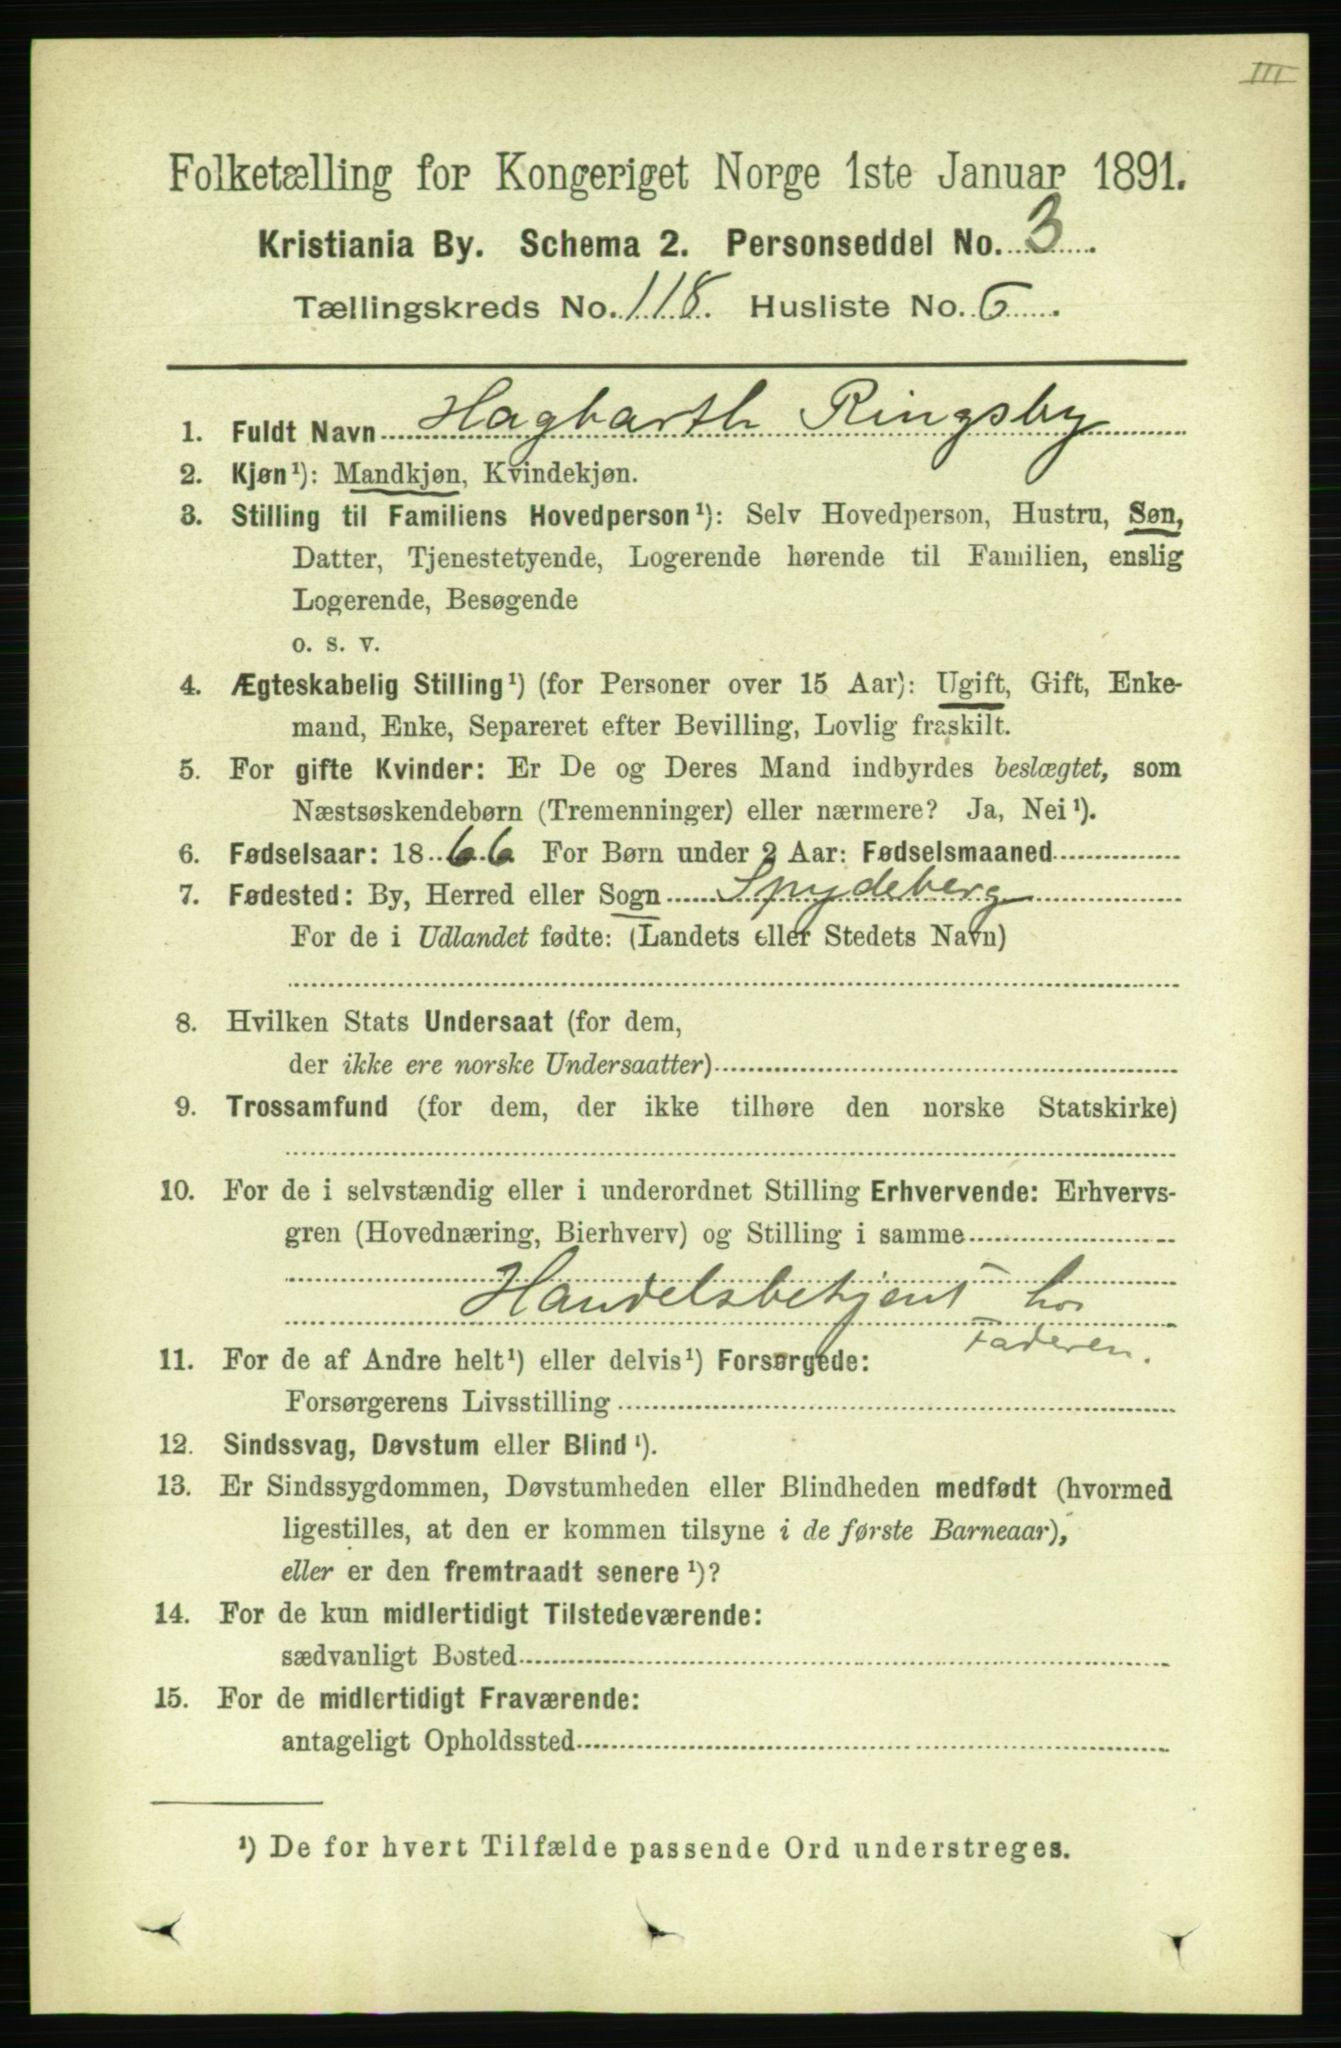 III
Folketælling for Kongeriget Norge 1ste Januar 1891.
Kristiania By. Schema 2. Personseddel No. 3.
Tællingskreds No. 118. Husliste No. 6.
1. Fuldt Navn Hagbarth Ringsby
2. Kjøn¹): Mandkjøn, Kvindekjøn.
3. Stilling til Familiens Hovedperson¹): Selv Hovedperson, Hustru, Søn,
Datter, Tjenestetyende, Logerende hørende til Familien, enslig
Logerende, Besøgende
o. s. v.
4. Ægteskabelig Stilling¹) (for Personer over 15 Aar): Ugift, Gift, Enke-
mand, Enke, Separeret efter Bevilling, Lovlig fraskilt.
5. For gifte Kvinder: Er De og Deres Mand indbyrdes beslægtet, som
Næstsøskendebørn (Tremenninger) eller nærmere? Ja, Nei¹).
6. Fødselsaar: 1866 For Børn under 2 Aar: Fødselsmaaned
7. Fødested: By, Herred eller Sogn Spydeberg
For de i Udlandet fødte: (Landets eller Stedets Navn)
8. Hvilken Stats Undersaat (for dem,
der ikke ere norske Undersaatter)
9. Trossamfund (for dem, der ikke tilhøre den norske Statskirke)
10. For de i selvstændig eller i underordnet Stilling Erhvervende: Erhvervs-
gren (Hovednæring, Bierhverv) og Stilling i samme
Handelsbetjent hos
Faderen.
11. For de af Andre helt¹) eller delvis¹) Forsørgede:
Forsørgerens Livsstilling
12. Sindssvag, Døvstum eller Blind¹).
13. Er Sindssygdommen, Døvstumheden eller Blindheden medfødt (hvormed
ligestilles, at den er kommen tilsyne i de første Barneaar),
eller er den fremtraadt senere¹)?
14. For de kun midlertidigt Tilstedeværende:
sædvanligt Bosted
15. For de midlertidigt Fraværende:
antageligt Opholdssted
¹) De for hvert Tilfælde passende Ord understreges.